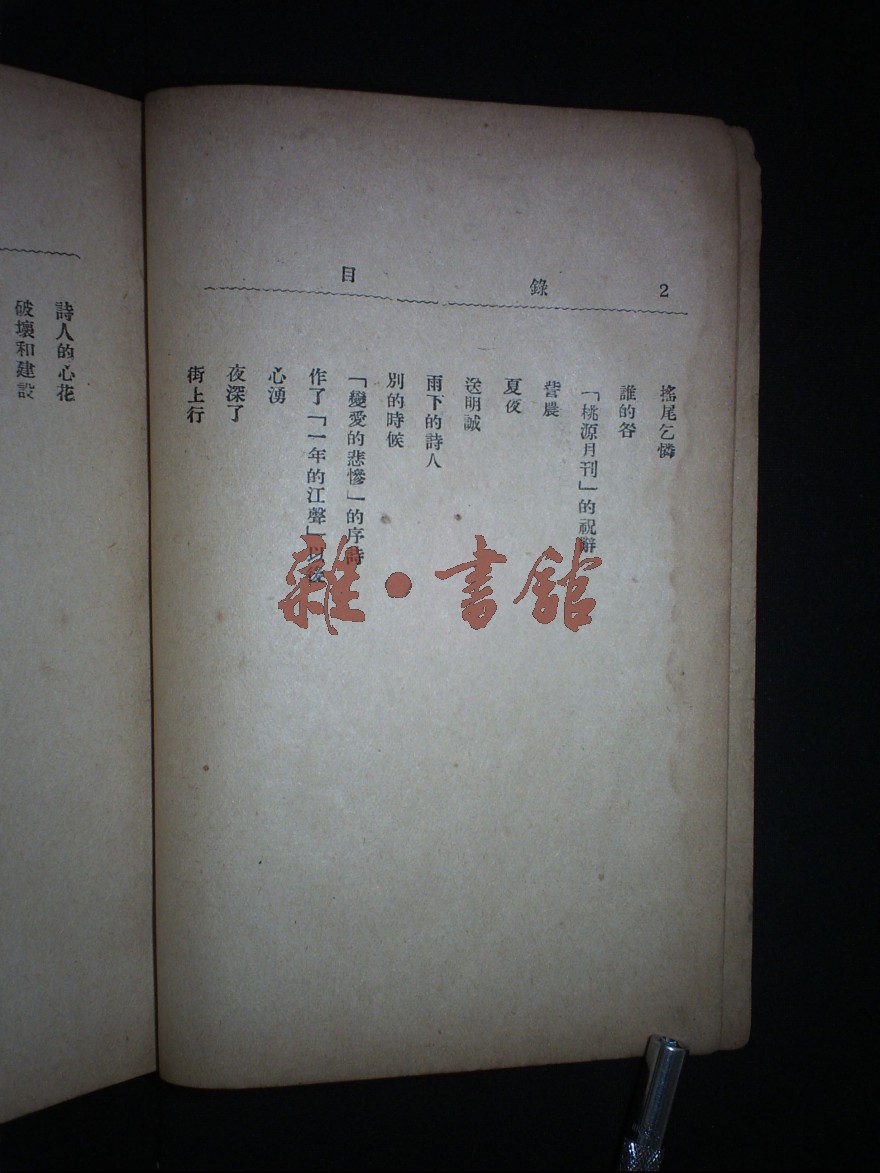 目錄 2
搖尾乞憐
誰的咎
「桃源月刊」的祝辭
訾農
夏夜
送明誠
雨下的詩人
別的時候
「變愛的悲慘」的序詩
作了「一年的江聲」以後
心湧
夜深了
街上行
詩人的心花
破壞和建設
雜·書館